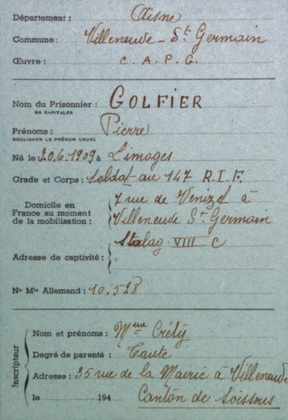 Département : Aisne
Commune : Villeneuve - St Germain
Œuvre : C. A. P. G.
Nom du Prisonnier : GOLFIER
EN CAPITALES
Prénoms : Pierre
SOULIGNER LE PRÉNOM USUEL
Né le 20.6.1909 à Limoges
Grade et Corps : Soldat au 147 R.I.F.
Domicile en France au moment de la mobilisation : 7 rue de Venizel à
Villeneuve St Germain
Stalag VIII C
Adresse de captivité :
No Mle Allemand : 10.528
Inscripteur
Nom et prénoms : Mme Crély
Degré de parenté : Tante
Adresse : 35 rue de la Mairie à Villeneuve
le 194 Canton de Soissons